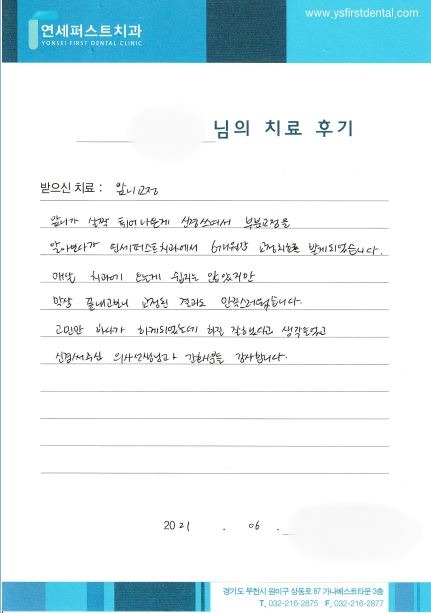 www.ysfirstdental.com
연세퍼스트치과
YONSEI FIRST DENTAL CLINIC
님의 치료 후기
받으신 치료 : 앞니교정
앞니가 살짝 튀어나온게 신경쓰여서 부분교정을
알아보다가 연세퍼스트치과에서 6개월간 교정치료를 받게되었습니다.
매달 치과에 오는게 쉽지는 않았지만
막상 끝내고보니 교정된 결과도 만족스러웠습니다.
고민만 하다가 하게되었는데 하길 잘했다고 생각들었고
신경써주신 의사선생님과 간호사분들 감사합니다.
2021 . 06 .
경기도 부천시 원미구 상동로 87 가나베스트타운 3층
T. 032-216-2875 F. 032-216-2877